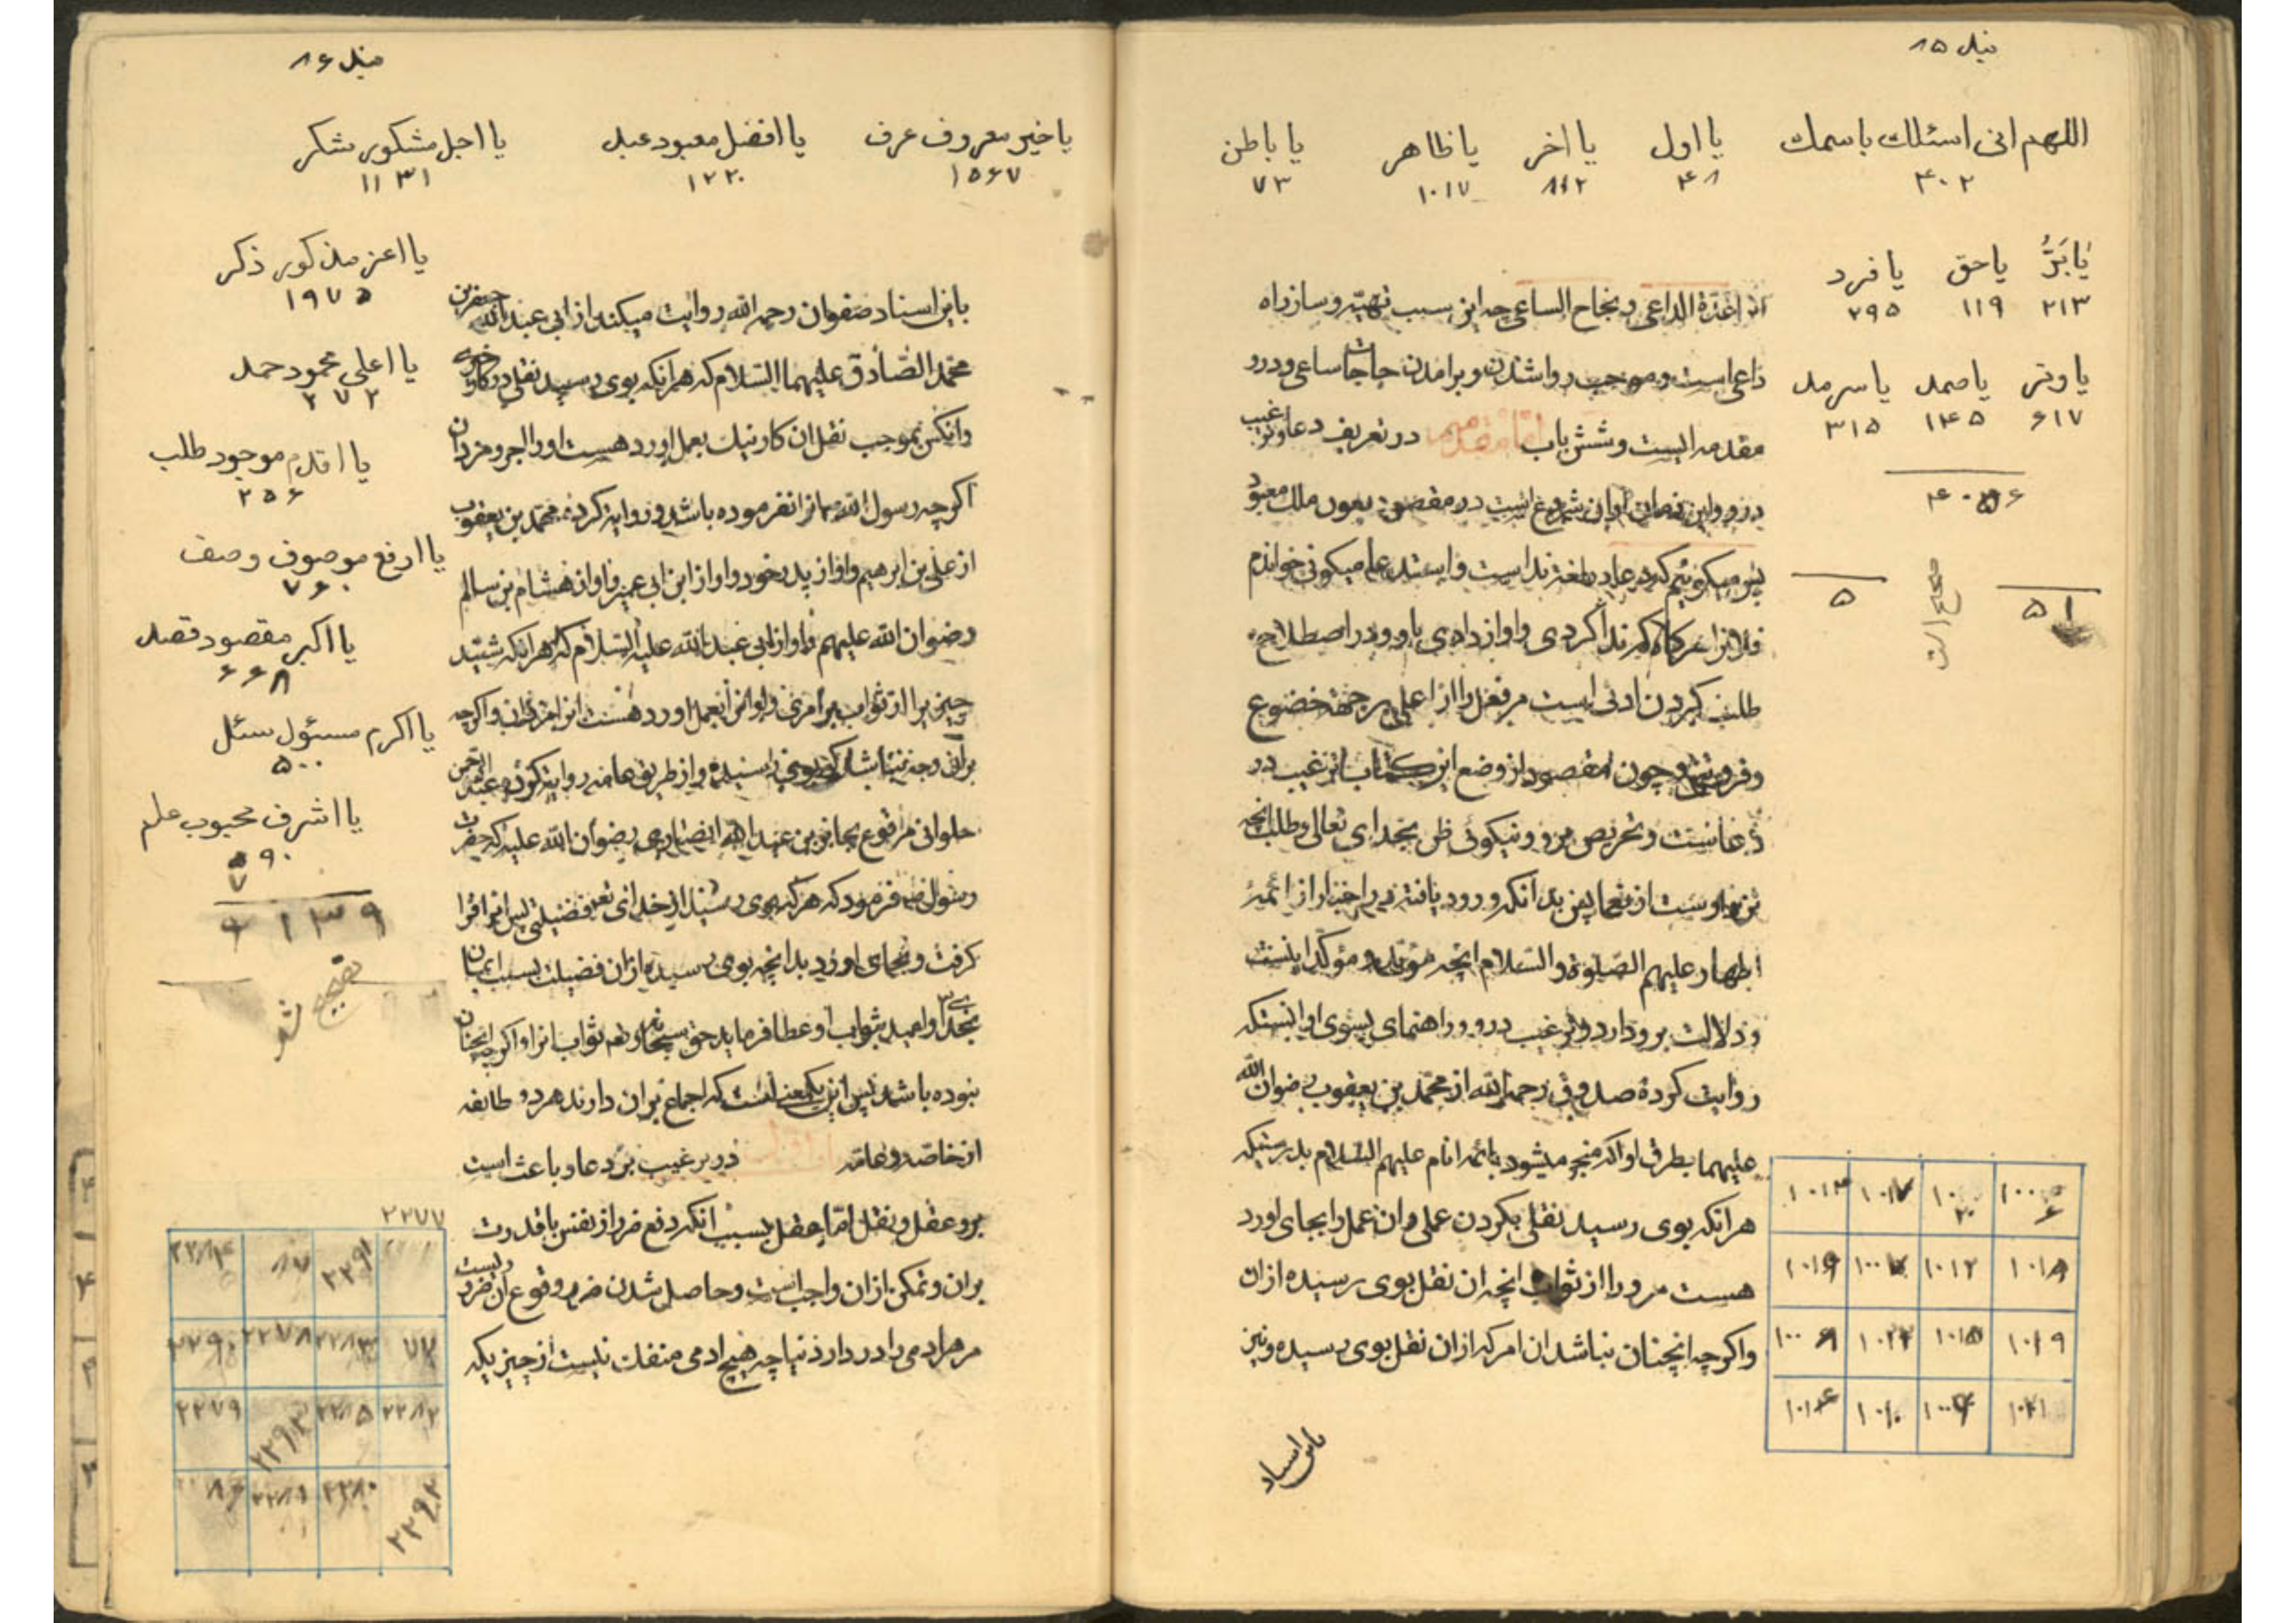 بند ۸۵
اللهم انی اسئلك باسمك یا اول یا اخر یا ظاهر یا باطن
۴۰۲ ۴۸ ۸۱۲ ۱۰۱۷ ۷۳
یا بَرُّ یا حق یا فرد
۲۱۳ ۱۱۹ ۲۹۵
یا وتر یا صمد یا سرمد
۶۱۷ ۱۴۵ ۳۱۵
۵۱ ۵
الداعی و نجاح الساعی چه این سبب تهیّه و ساز راه
داعی است و موجب روا شدن و برامدن حاجات ساعی و درو
مقدمه ایست و شش باب اما مقدمه در تعریف دعا و ترغیب
درو و این زمان اوان شروع است در مقصود بعون ملك معبود
پس میکوئیم که دعا در لغت ندا است و استدعا میکوئی خواندم
فلانرا هرکاه که ندا کردی و اواز دادی باو و در اصطلاح
طلب کردن ادنی است مر فعل را از اعلی بر جهة خضوع
و فروتنی و چون مقصود از وضع این کتاب ترغیب در
دعاست و تحریص برو و نیکوئی ظن بخدای تعالی و طلب انچه
نزد اوست از نعما پس بدانکه ورود یافته در اخبار از ائمهٔ
اطهار علیهم الصّلوة و السّلام انچه مؤید و مؤکّد اینست
و دلالت برو دارد و ترغیب درو و راهنمای بسوی او اینستکه
روایت کرده صدوق رحمه الله از محمّد بن یعقوب رضوان الله
علیهما بطرق او که منجر میشود بائمه انام علیهم السّلام بدرستیکه
هر انکه بوی رسید نقلی بکردن عملی و ان عمل را بجای اورد
هست مر ورا از ثواب انچه ان نقل بوی رسیده از ان
و اکرچه انچنان نباشد ان امر که از ان نقل بوی رسیده و نیز
باین اسناد
۱۰۱۸ ۱۰۱۲
۱۰۱۹ ۱۰۱۵
بند ۸۶
یا خیر معروف عرف یا افضل معبود عبد یا اجل مشکور شکر
۱۵۶۷ ۱۲۲۰ ۱۱۳۱
یا اعز مذکور ذکر
۱۹۷۵
یا اعلی محمود حمد
۲۷۲
یا اقدم موجود طلب
۲۵۶
یا ارفع موصوف وصف
۷۶۰
یا اکبر مقصود قصد
۶۶۸
یا اکرم مسئول سئل
۵۰۰
یا اشرف محبوب علم
۶۱۳۹
باین اسناد صفوان رحمه الله روایت میکند از ابی عبد الله جعفر بن
محمّد الصّادق علیهما السّلام که هر انکه بوی رسید نقلی در کار خیری
و انکس بموجب نقل ان کار نیك بعمل اورد هست او را اجر و مزد ان
اکرچه رسول الله انرا نفرموده باشد و روایة کرده محمّد بن یعقوب
از علی بن ابرهیم و او از پدر خود و او از ابن ابی عمیر و او از هشام بن سالم
رضوان الله علیهم و او از ابی عبد الله علیه السّلام که هر انکه شنید
چیزیرا از ثواب بر امری و او انرا بعمل اورد هست انرا مزد ان و اکرچه
بران وجه نباشد که بوی رسیده و از طریق عامه روایة کرده عبد الرحمن
حلوانی مرفوع بجابر بن عبد الله انصاری رضوان الله علیه که حضرت
رسول فرمود که هر که بوی رسید از خدای تع فضیلتی پس انرا فرا
کرفت و بجای اورد بدانچه بوی رسیده از ان فضیلت بسبب ایمان
بخدا و امید بثواب او عطا فرماید حق سبحانه و تع ثواب انرا و اکرچه انچنان
نبوده باشد پس این یکمعنی است که اجماع بران دارند هر دو طایفه
از خاصّه و عامّه در ترغیب بر دعا و باعث است
برو عقل و نقل امّا عقل بسبب انکه دفع ضرر از نفس با قدرت
بران و تمکن از ان واجب است و حاصل شدن ضرر و وقوع ان ضرور
مر هر ادمی را در دار دنیا چه هیچ ادمی منفك نیست از چیزیکه
۲۲۷۷
۲۲۹۱
۲۲۷۸
۲۲۷۹ ۲۲۸۵ ۲۲۸۲
۲۲۸۰